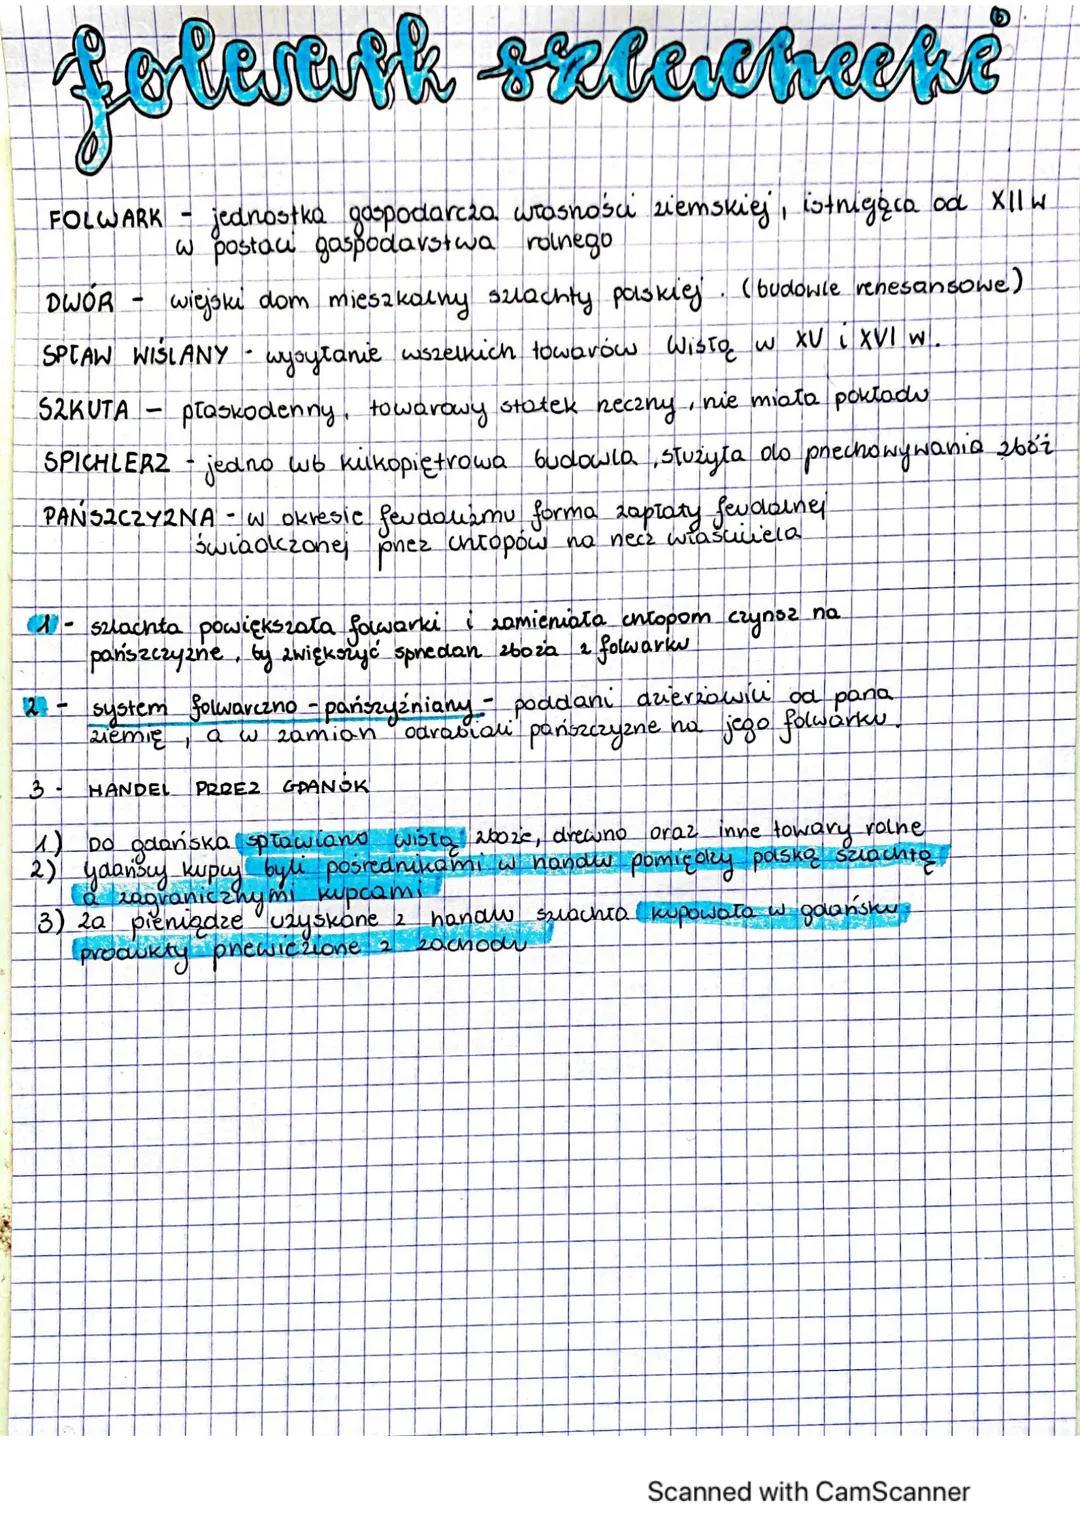 folwark szlachecki
FOLWARK - jednostka gospodarcza własności ziemskiej, istniejąca od XII w
w postaci gospodarstwa rolnego
DWÓR - wiejski dom mieszkalny szlachty polskiej. (budowle renesansowe)
SPŁAW WIŚLANY - wysyłanie wszelkich towarów Wisłą w XV i XVI w.
SZKUTA - płaskodenny, towarowy statek rzeczny, nie miała pokładu
SPICHLERZ - jedno lub kilkopiętrowa budowla, służyła do przechowywania zbóż
PAŃSZCZYZNA - w okresie feudalizmu forma zapłaty feudalnej
świadczonej przez chłopów na rzecz właściciela
1 - szlachta powiększała folwarki i zamieniała chłopom czynsz na
pańszczyznę, by zwiększyć sprzedaż zboża z folwarku
2 - system folwarczno - pańszyźniany - poddani dzierżawili od pana
ziemię, a w zamian odrabiali pańszczyznę na jego folwarku.
3 - HANDEL PRZEZ GDAŃSK
1) Do gdańska spławiano wisłą zboże, drewno oraz inne towary rolne
2) gdańscy kupcy byli pośrednikami w handlu pomiędzy polską szlachtą
a zagranicznymi kupcami
3) za pieniądze uzyskane z handlu szlachta kupowała w gdańsku
produkty przewiezione z zachodu
Scanned with CamScanner